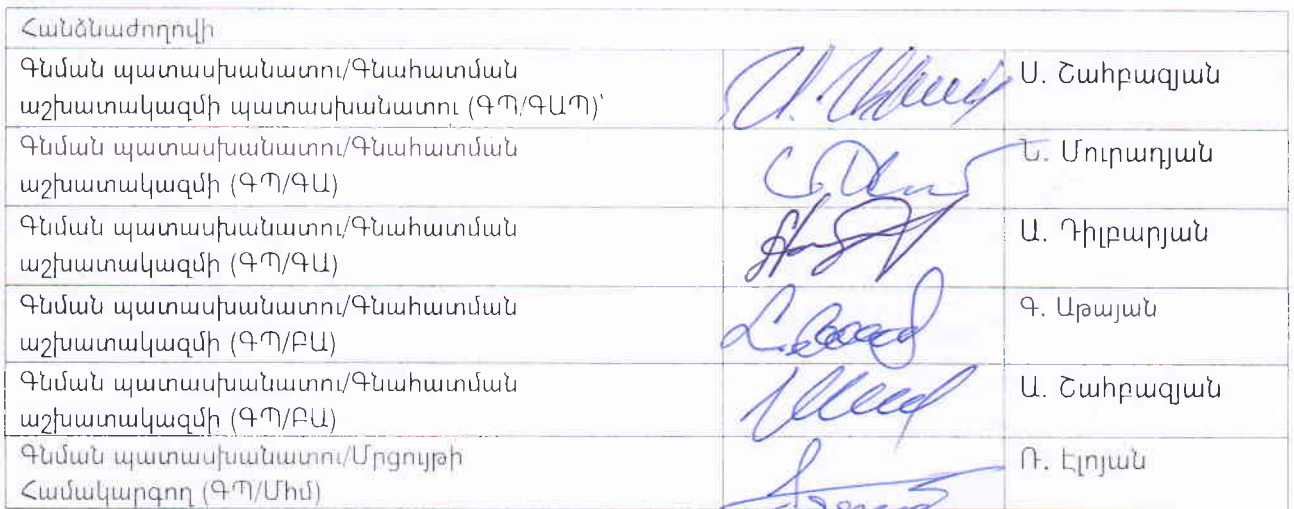 Հանձնաժողովի
Գնման պատասխանատու/Գնահատման
աշխատակազմի պատասխանատու (ԳՊ/ԳԱՊ)՝
Ս. Շահբազյան
Գնման պատասխանատու/Գնահատման
աշխատակազմի (ԳՊ/ԳԱ)
Ն. Մուրադյան
Գնման պատասխանատու/Գնահատման
աշխատակազմի (ԳՊ/ԳԱ)
Ա. Դիլբարյան
Գնման պատասխանատու/Գնահատման
աշխատակազմի (ԳՊ/ԲԱ)
Գ. Աթայան
Գնման պատասխանատու/Գնահատման
աշխատակազմի (ԳՊ/ԲԱ)
Ա. Շահբազյան
Գնման պատասխանատու/Մրցույթի
Համակարգող (ԳՊ/Միմ)
Ռ. Էլոյան